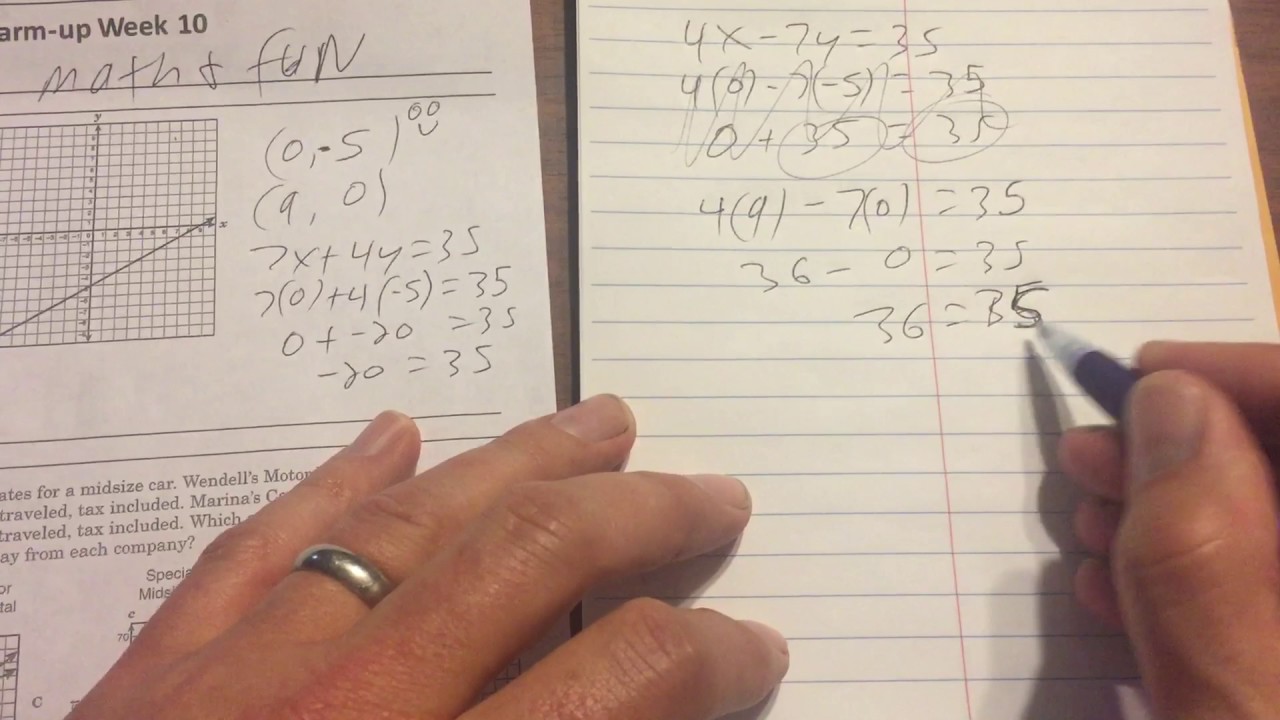 arm-up Week 10
maths fun
y
x
(0,-5)
(9, 0)
7x+4y=35
7(0)+4(-5)=35
0+-20 =35
-20 = 35
ates for a midsize car. Wendell's Motor
traveled, tax included. Marina's
traveled, tax included. Which
ay from each company?
or
tal
Specia
Mids
c
70
C
4x-7y=35
4(0)-7(-5)=35
0+35=35
4(9)-7(0)=35
36-0=35
36=35